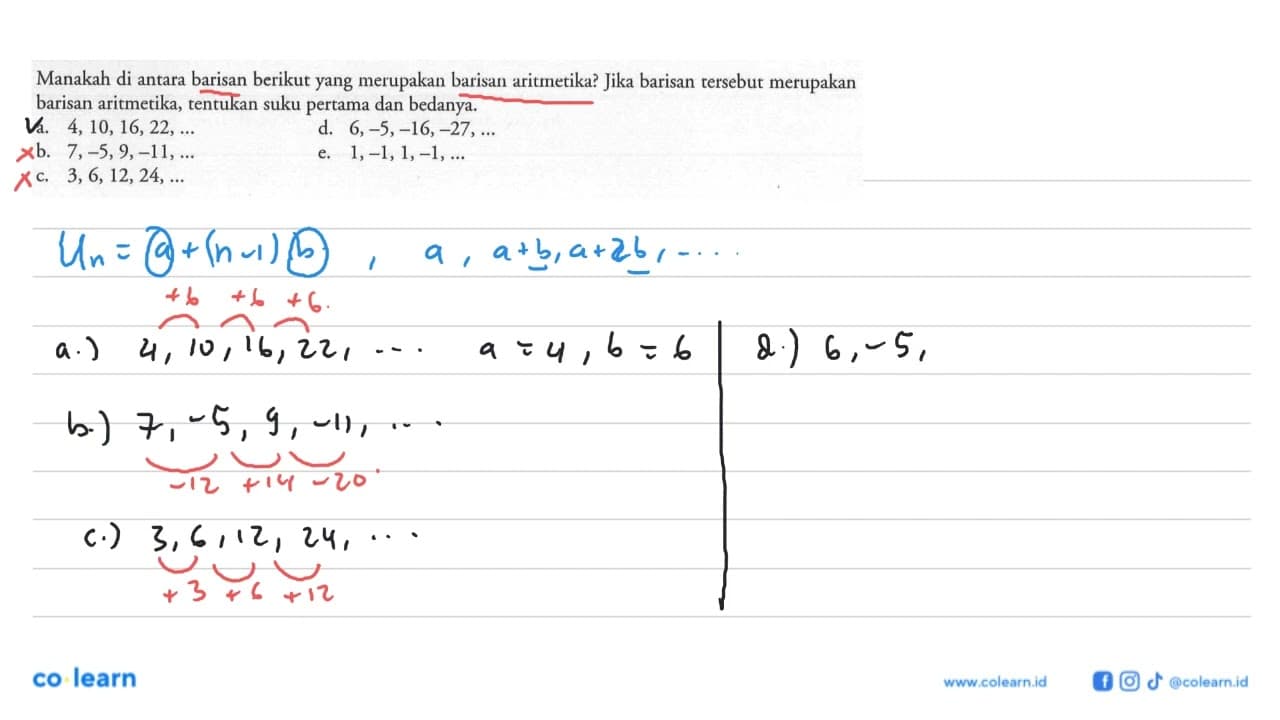 Manakah di antara barisan berikut yang merupakan barisan aritmetika? Jika barisan tersebut merupakan
barisan aritmetika, tentukan suku pertama dan bedanya.
a. 4, 10, 16, 22, ...
b. 7, –5, 9, –11, ...
c. 3, 6, 12, 24, ...
d. 6, –5, –16, –27, ...
e. 1, –1, 1, –1, ...
Un = a + (n-1) b , a , a+b, a+2b, ....
+6 +6 +6.
a.) 4, 10, 16, 22, .... a = 4, b = 6
b.) 7, -5, 9, -11, ...
-12 +14 -20
c.) 3, 6, 12, 24, ...
+3 +6 +12
d.) 6, -5,
co learn
www.colearn.id
@colearn.id